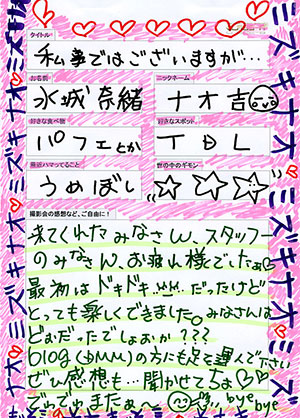 タイトル
私事ではございますが…
お名前
ニックネーム
水城奈緒
ナオ吉
好きな食べ物
好きなスポット
パフェとか
TDL
最近ハマってること
世の中のギモン
うめぼし
撮影会の感想など、ご自由に!
来てくれたみなさん、スタッフー
のみなさん、お疲れ様でしたぁ
最初はドキドキ…だったけど
とっても楽しくできました。みなさんは
どぉだったでしょおか???
blog(DMM)の方にも足を運んで下さい
ぜひ感想も…聞かせてちょ♡♡
でゎでゎまたぁ〜 bye bye
ミズキナオ
ミズキナオ